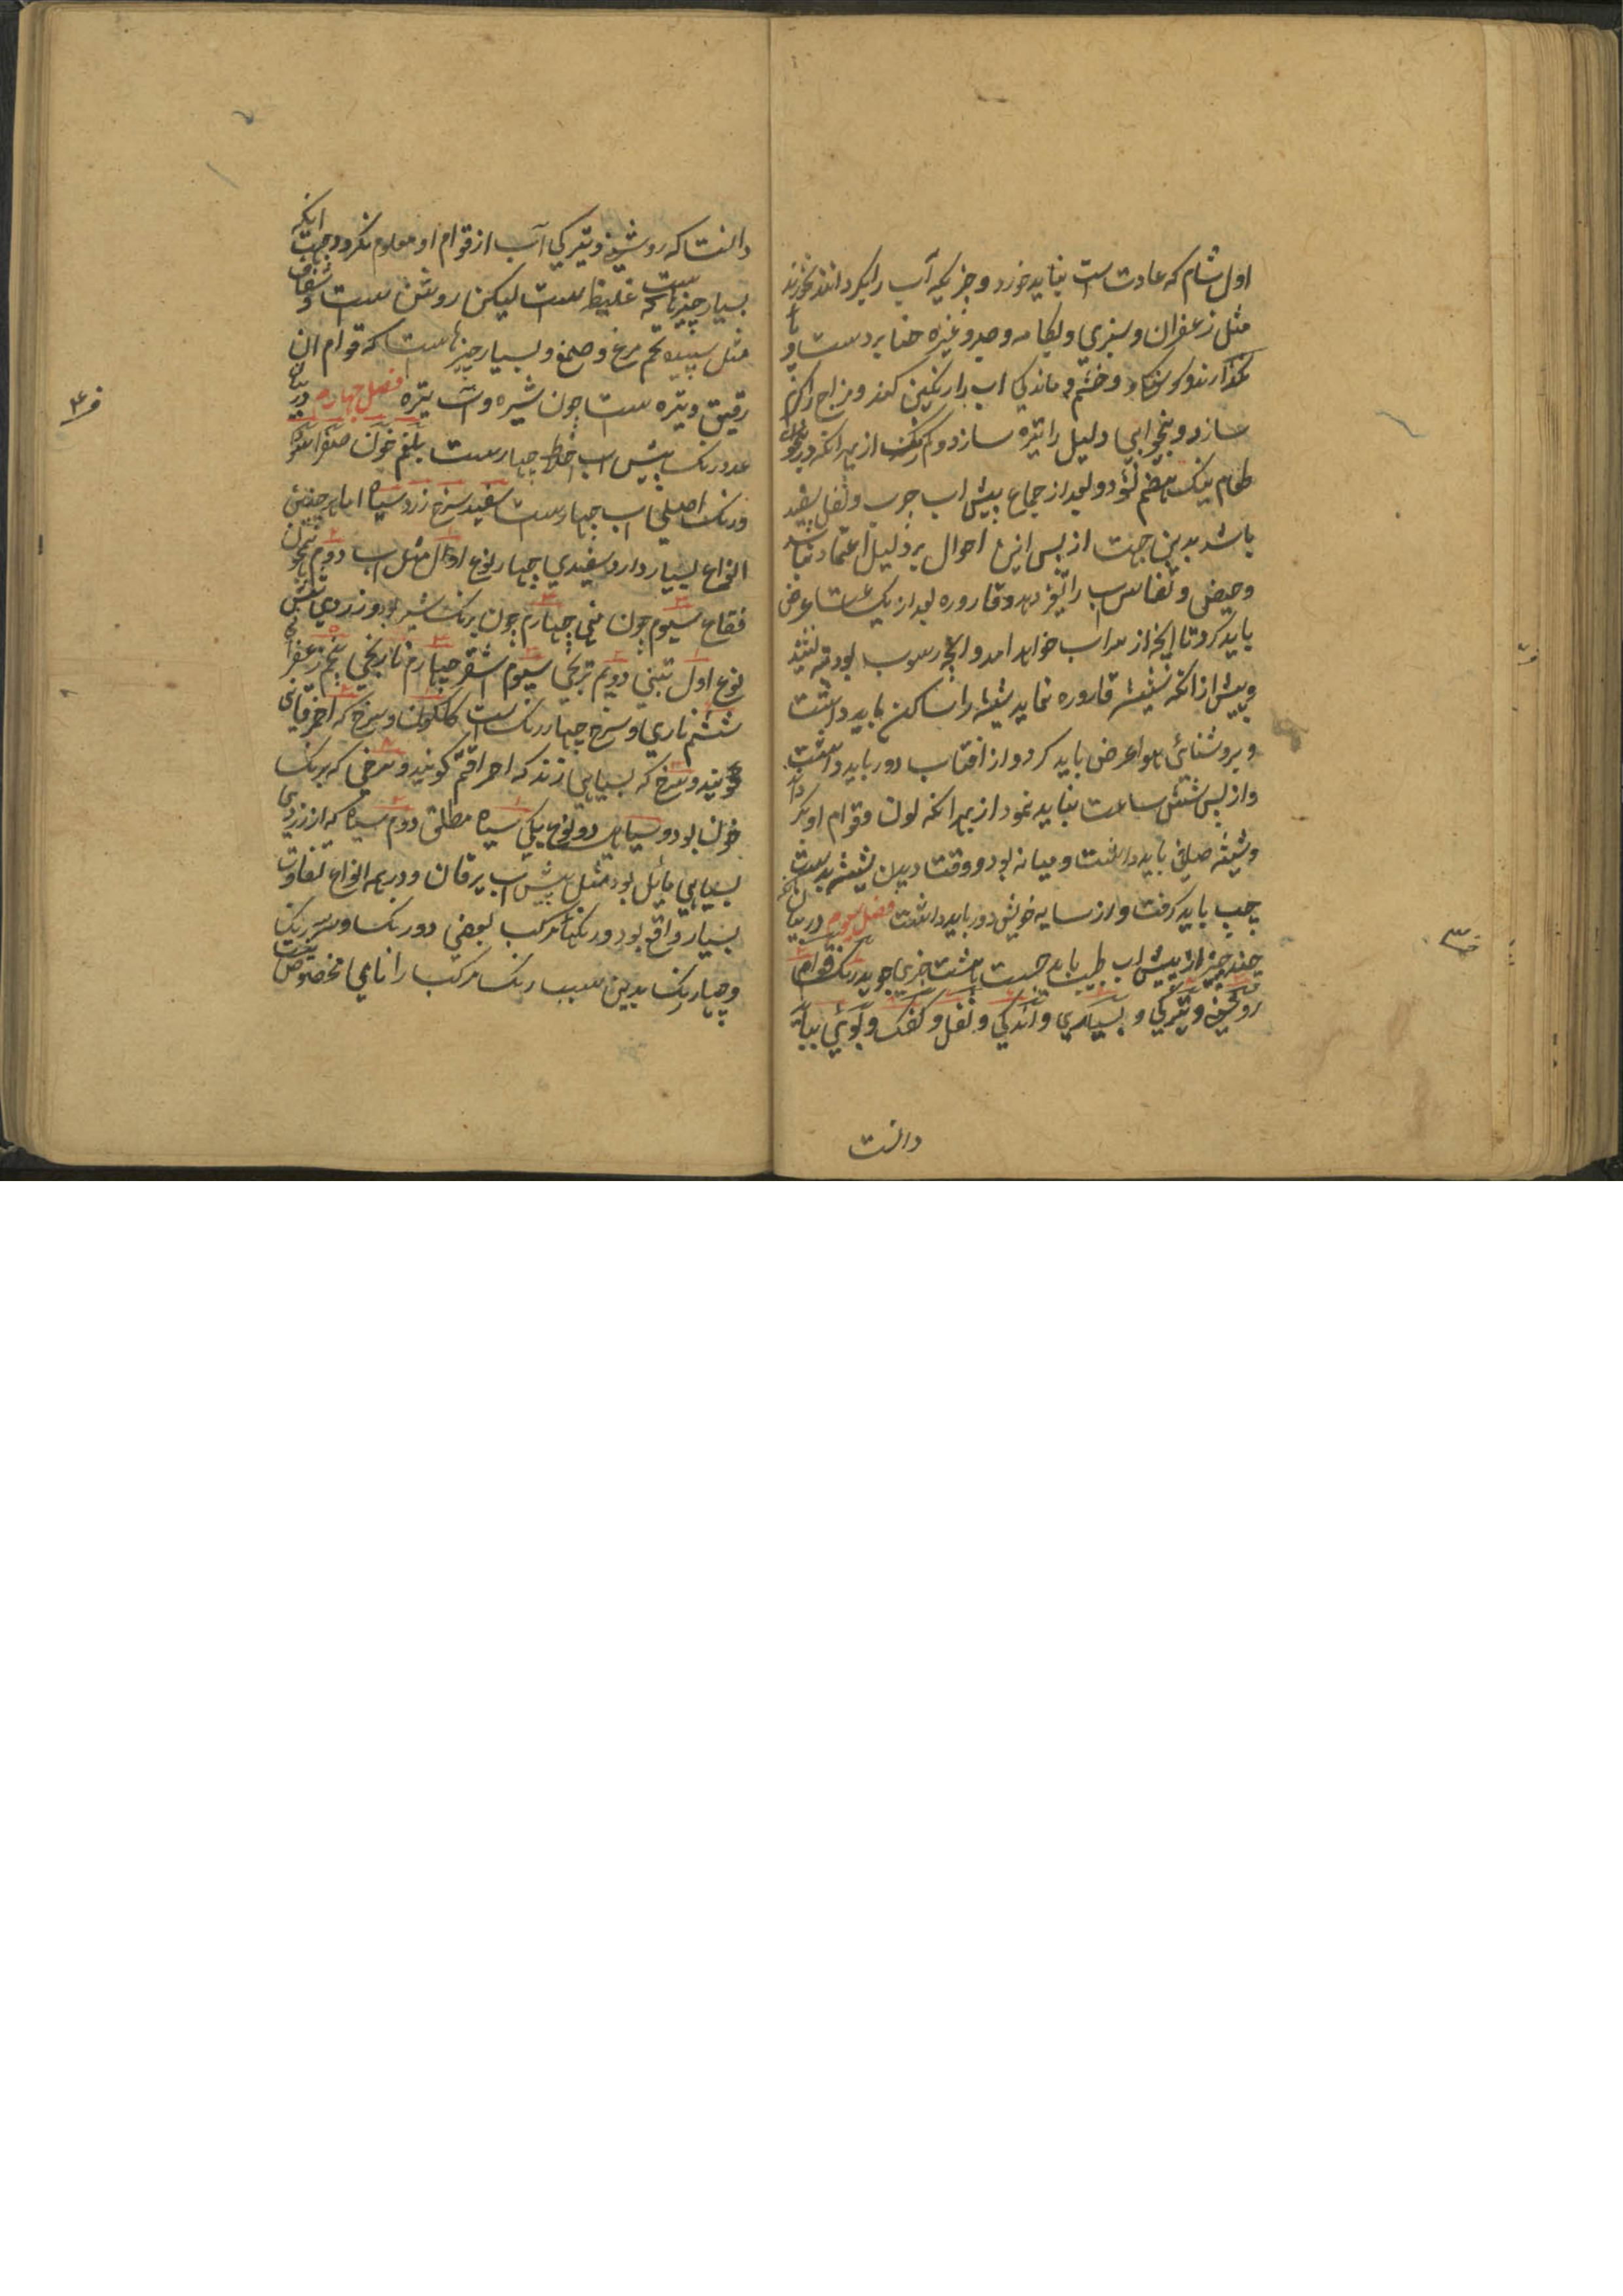 اول شام که عادت است بناید خورد و چزیکه آب را بکرداند نخورند
مثل زعفران و سبزی و بکامه و صبر و غیره حنا بر دست و پا
نکذارند و کرسنکی و خشم و ماندکی اب را رنکین کند و مزاج را کرم
سازد و بیخوابی دلیل را تیره سازد و کم رنک از بهر انکه در بیخوابی
طعام نیک هضم نشود و بعد از جماع پیش اب چرب و ثفل سفید
باشد بدین جهت از پس این احوال بر دلیل اعتماد نباشد
و حیض و نفاس اب را تغیر دهد و قاروره بعد از یک ساعت عرض
باید کرد تا انچه از سر اب خواهد امد و انچه رسوب بود ته نشیند
و پیش از انکه شیشه قاروره نماید شیشه را ساکن باید داشت
و بروشنائی هوا عرض باید کرد و از افتاب دور باید داشت
و از پس شش ساعت بناید نمود از بهر انکه لون و قوام او بکردد
و شیشه صافی باید داشت و میانه بود و وقت دیدن شیشه بدست
چپ باید کرفت و از سایه خویش دور باید داشت فصل سوم در بیان انکه
چند چیز از پیش اب طبیب باید جست باید هشت چزی جوید رنک قوام
روشنی و تیرکی و بسیاری و اندکی و ثفل و کفک و بوئی بباید
دانست
دانست که روشنی و تیرکی آب از قوام او معلوم نکردد جهت انکه
بسیار چیزهاست که غلیظ ست لیکن روشن ست و شفاف
مثل سپیده تخم مرغ و صمغ و بسیار چیزهاست که قوام ان
رقیق و تیره ست چون شیره و اب تیره فصل چهارم در بیان
عدد رنک پیش اب اخلاط چهار ست بلغم خون صفرا سودا
و رنک اصلی اب چهار ست سفید سرخ زرد سیاه اما هر جنسی
انواع بسیار دارد سفیدی چهار نوع اول مثل اب دوم همچون
فقاع سیوم چون منی چهارم چون برنک شیر بود و زردی شش
نوع اول تبنی دویم ترنجی سیوم اشقر چهارم نارنجی پنجم زعفرانی
ششم ناری و سرخ چهار رنک است کلکون و سرخ که احرقانی
کویند و سرخ که بسیاهی زند که احراقتم کویند و سرخی که برنک
خون بود و سیاهی دو نوع یکی سیاه مطلق دوم سیاه که از زردی
بسیاهی مائل بود مثل پیش اب یرقان و در همه انواع تفاوت
بسیار واقع بود و رنکها مرکب بعضی دو رنک و سه رنک
و چهار رنک بدین سبب رنک مرکب را نامی مخصوص نیست